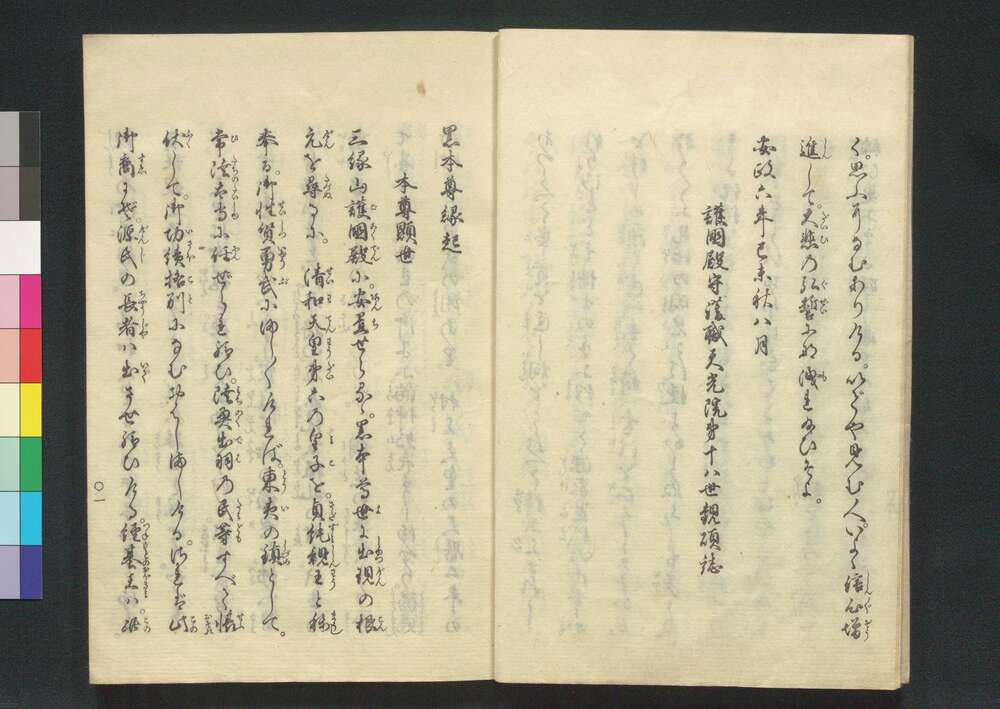 く思ふけるなむありける。いでや見む人いよ〳〵信心増
進して。大悲の弘誓にな洩れ給ひそよ。
安政六年己未秋八月
護國殿守護職天光院第十八世観碩誌
黒本尊縁起
本尊顕世
三縁山護國殿に安置せらるゝ。黒本尊世に出現の根
元を尋るに。清和天皇第六の皇子を。貞純親王と称
奉る。御性質勇武にましましければ。東夷の鎮として。
常陸太守に任せられ給ひ。陸奥出羽の民等すべて帳
伏して。御功績格別になむおはしましける。これぞ此
御裔こそ。源氏の長者ハ出させ給ひける。経基王ハ此
〇一